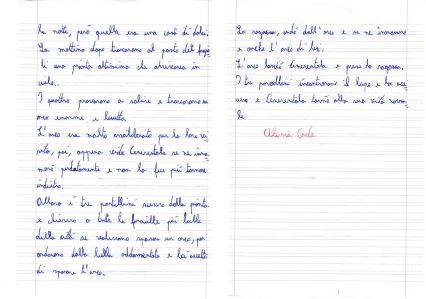 la notte, però quella era una casa di dolci.
La mattina dopo trovarono al posto dei fagioli
una pianta altissima che arrivava in
cielo.
I quattro provarono a salire e trovarono un
orco enorme e brutto.
L'orco era molto arrabbiato per la loro vi
sita, poi, appena vide Cenerentola se ne inna
morò perdutamente e non la fece più tornare
indietro.
Allora i tre porcellini scesero dalla pianta
e chiesero a tutte le fanciulle più belle
della città se volessero sposare un orco, poi
andarono dalla bella addormentata e lei accettò
di sposare l'orco.
La ragazza, andò dall'orco e se ne innamorò
e anche l'orco di lei.
L'orco lasciò Cenerentola e prese la ragazza.
I tre porcellini incontrarono il lupo e lo
e Cenerentola tornò alla sua vita norma
le.